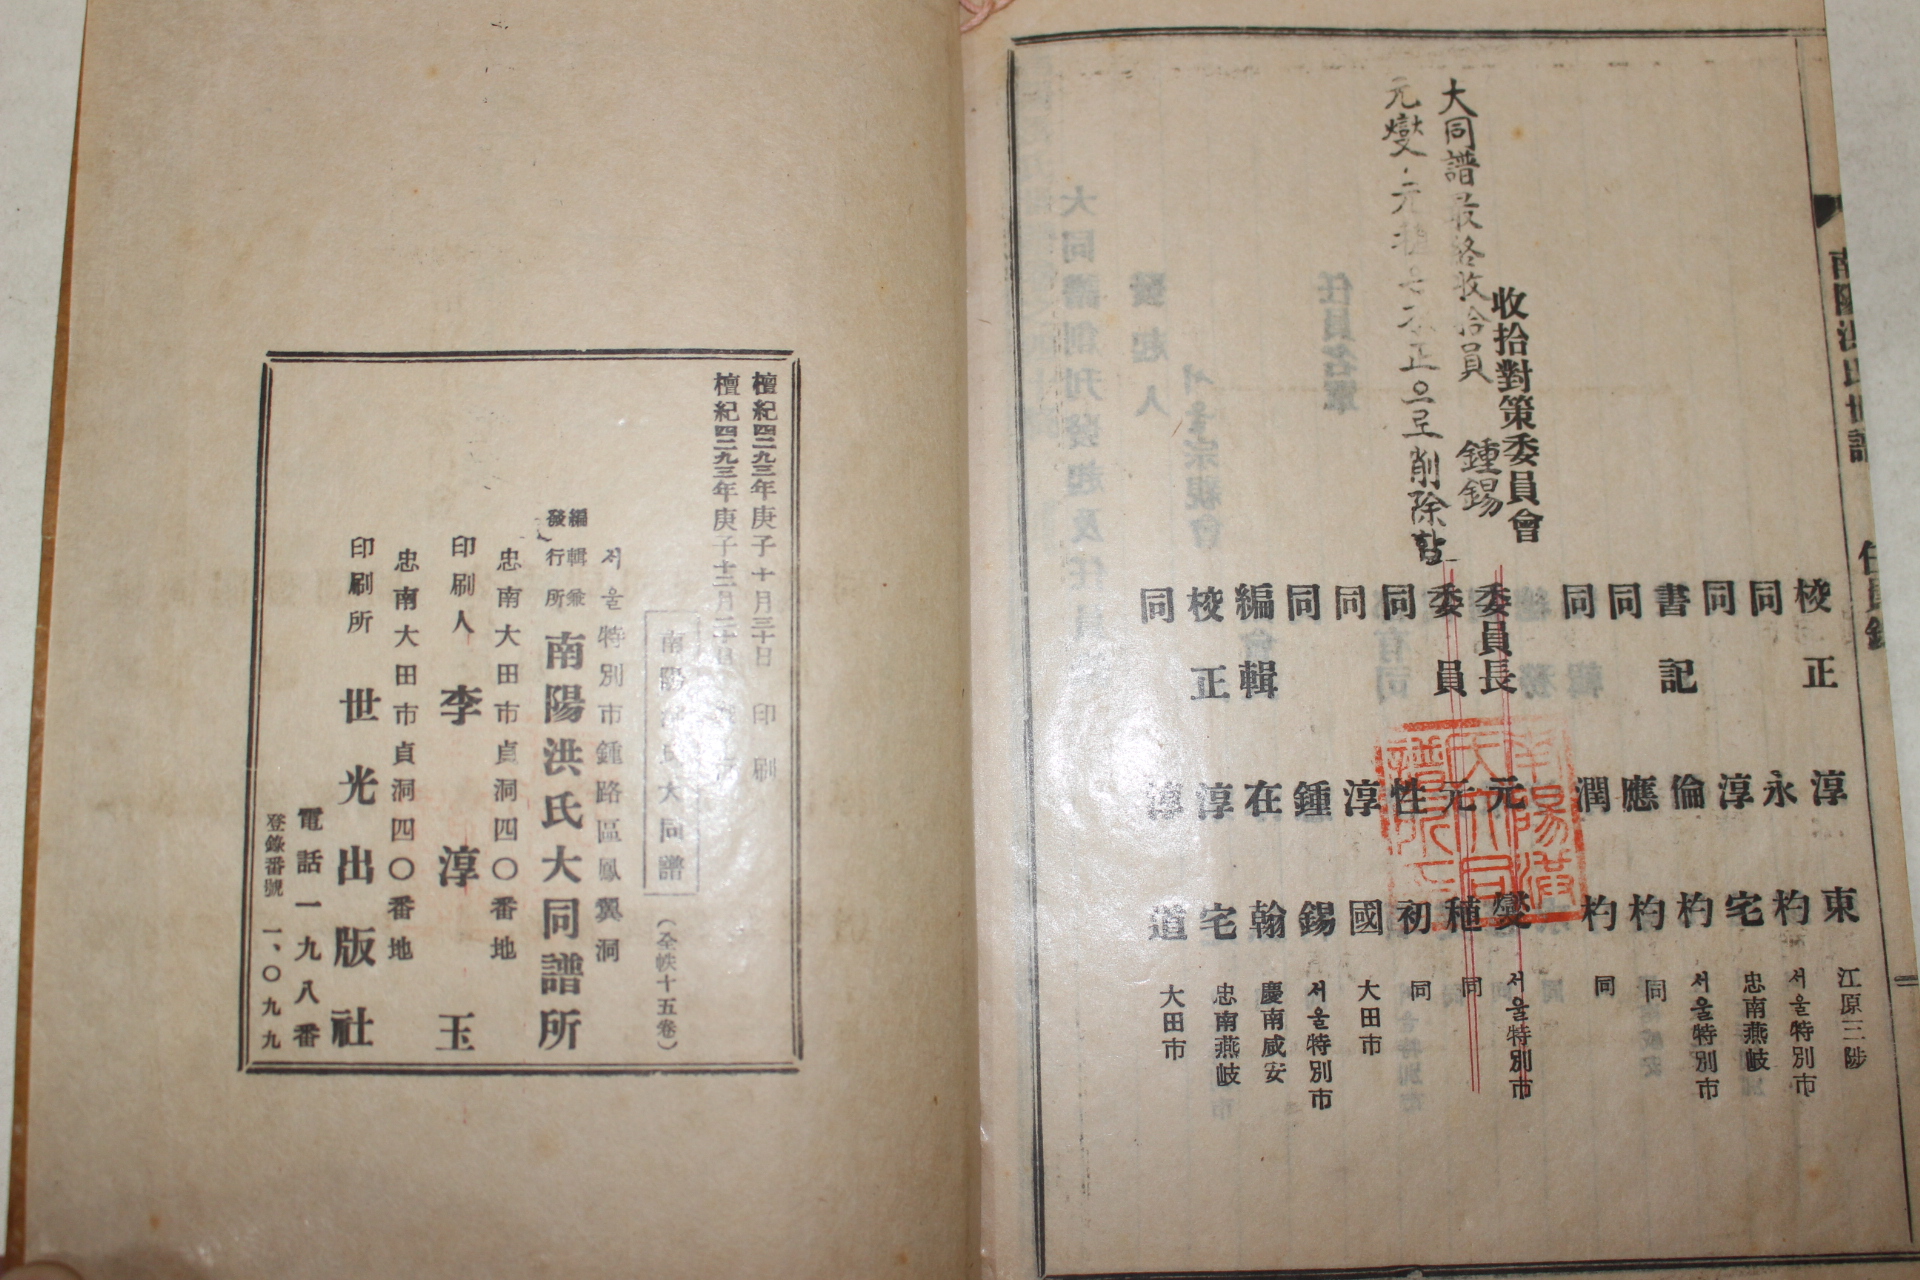 南陽洪氏世譜 任員錄
校正 淳東 江原三陟
同 永杓 서울特別市
同 淳宅 忠南燕岐
書記 倫杓 서울特別市
同 應杓 同
同 潤杓 同
收拾對策委員會
委員長 元燮 서울特別市
委員 元種 同
同 性初 同
同 淳國 大田市
同 鍾錫 서울特別市
編輯 在翰 慶南咸安
校正 淳宅 忠南燕岐
同 淳道 大田市
大同譜最終收拾員 鍾錫
元燮·元 不正으로削除함
檀紀四二九三年庚子十月三十日 印刷
檀紀四二九三年庚子十二月二十日
南陽洪氏大同譜 (全帙十五卷)
서울特別市鍾路區鳳翼洞
編輯兼發行所 南陽洪氏大同譜所
忠南大田市貞洞四〇番地
印刷人 李淳玉
忠南大田市貞洞四〇番地
印刷所 世光出版社
電話一九八番
登錄番號 一、〇九九